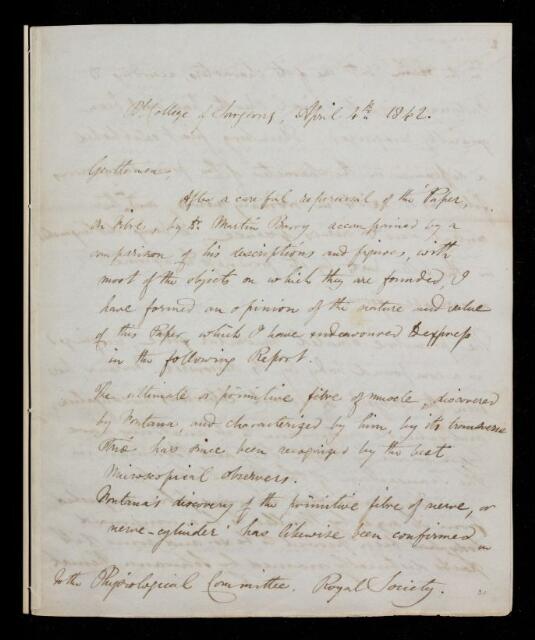 Rl. College of Surgeons, April 4th. 1842.
Gentlemen
After a careful reperusal of the 'Paper,
on fibre, by Dr. Martin Barry accompanied by a
comparison of his descriptions and figures, with
most of the objects on which they are founded, I
have formed an opinion of the nature and value
of this Paper, which I have endeavoured to express
in the following Report.
The ultimate or primitive fibre of muscle, discovered
by Fontana, and characterized by him, by its transverse
striæ has since been recognized by the best
Microscopical observers.
Fontana's discovery of the primitive fibre of nerve, or
'nerve-cylinder' has likewise been confirmed in
To the Physiological Committee. Royal Society.